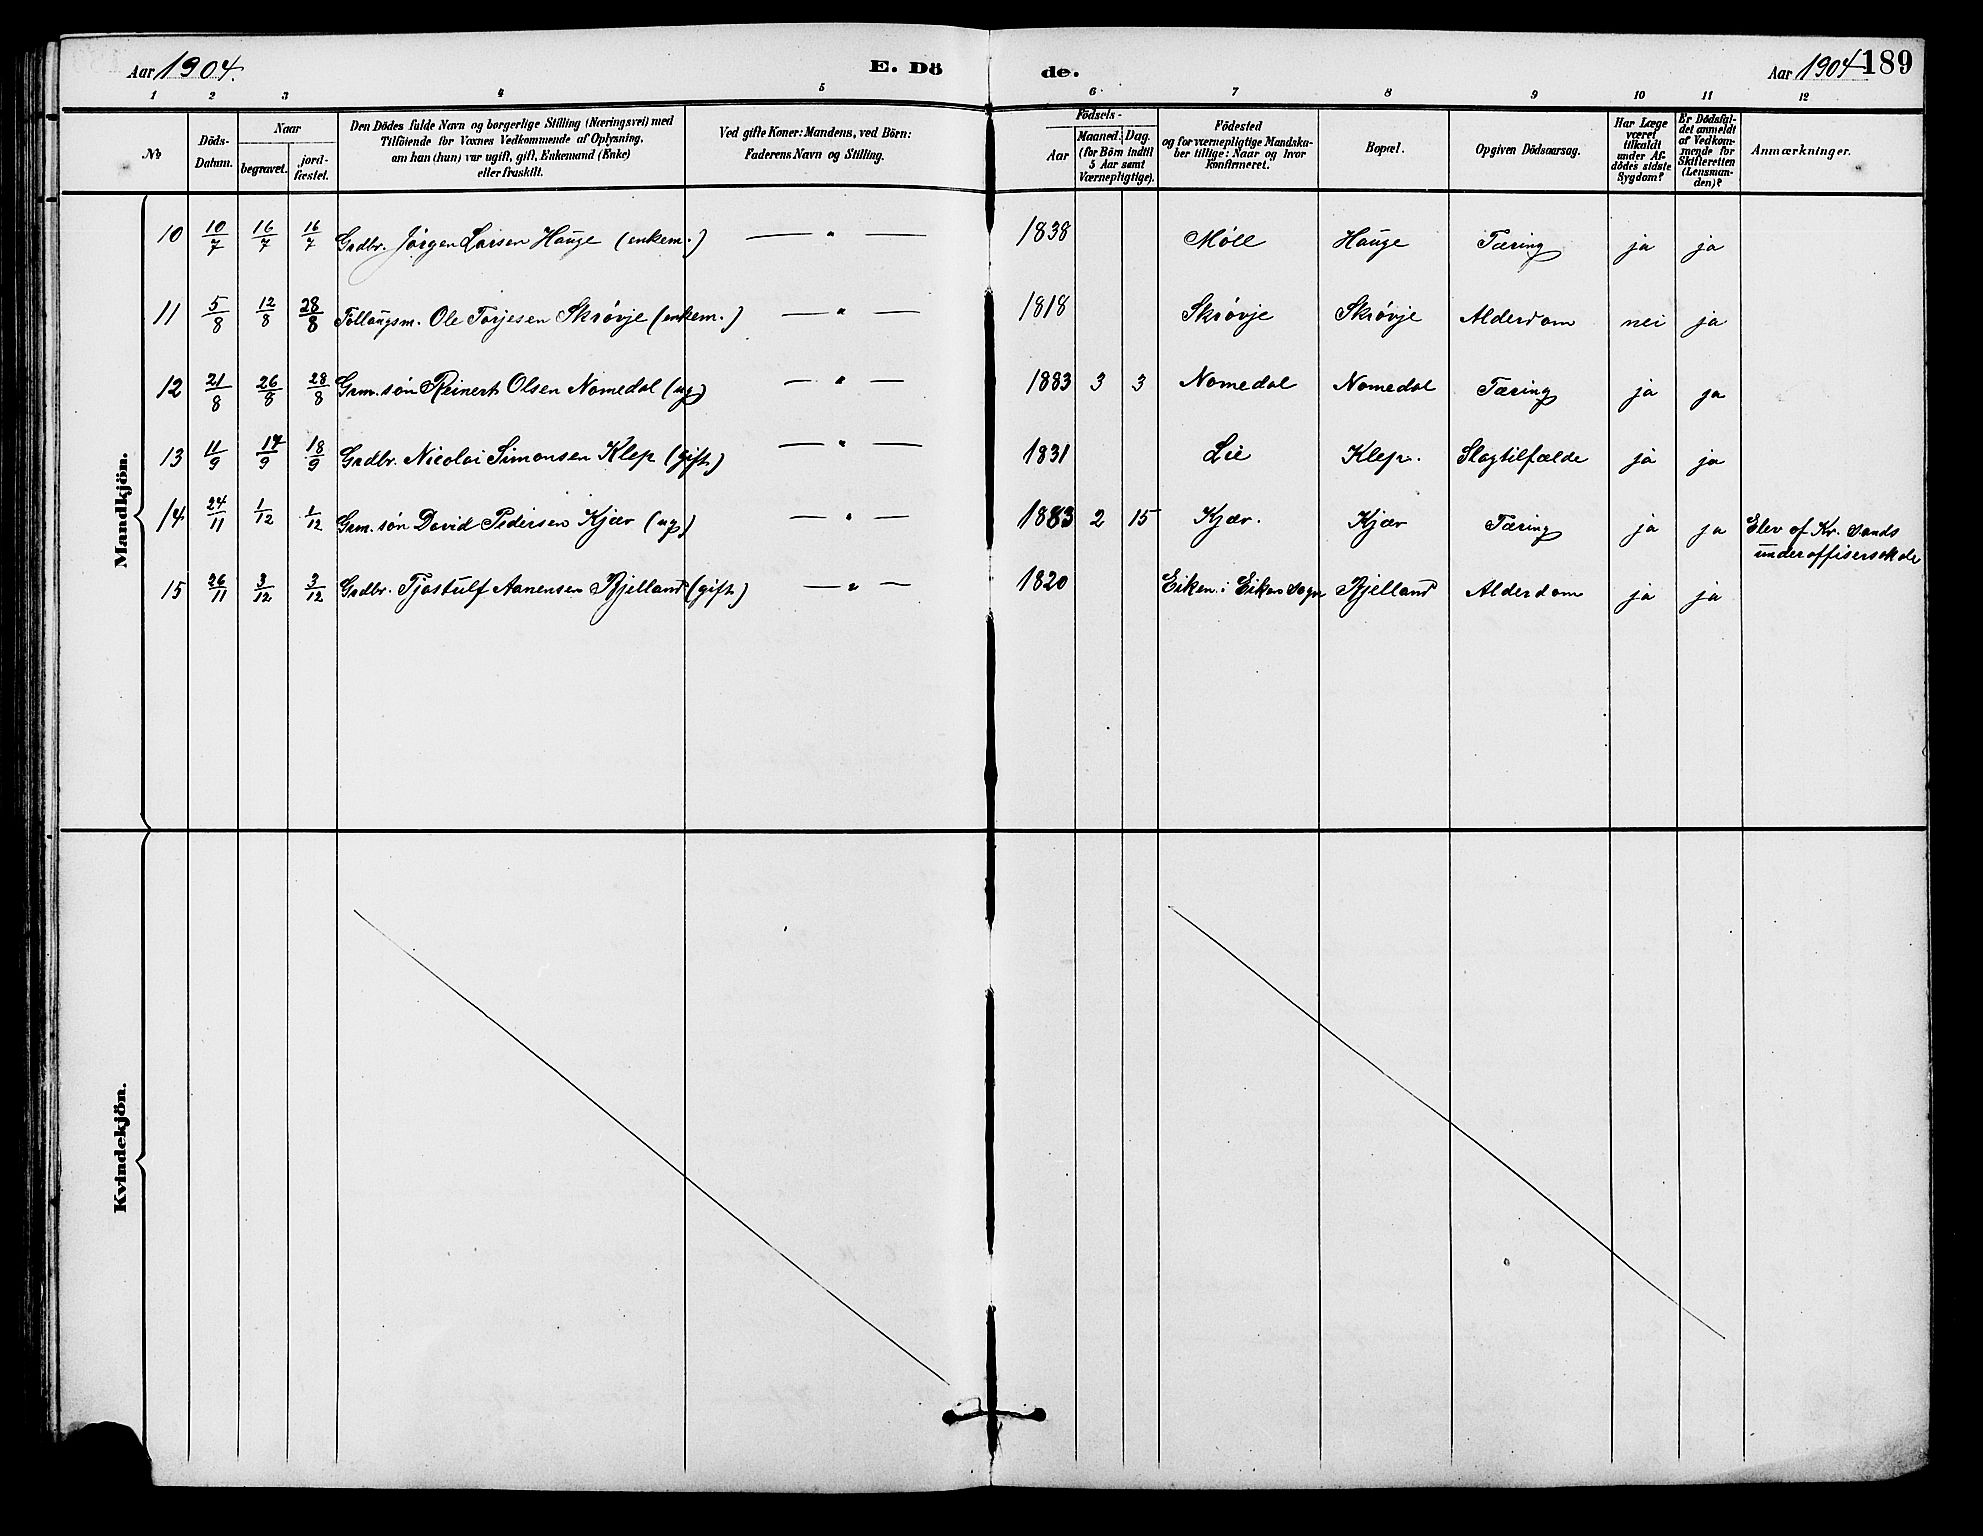 Aar 1904. E. Dö de. Aar 1904 189
1 2 3 4 5 6 7 8 9 10 11 12
No
Döds-Datum.
Naar
begravet.
jord-fæstet.
Den Dödes fulde Navn og borgerlige Stilling (Næringsvei) med
Tilföiende for Voxnes Vedkommende af Oplysning,
om han (hun) var ugift, gift, Enkemand (Enke)
eller fraskilt.
Ved gifte Koner: Mandens, ved Börn:
Faderens Navn og Stilling.
Födsels-
Aar
Maaned. Dag.
(for Börn indtil
5 Aar samt
Værnepligtige).
Födested
og for værnepligtige Mandska-
ber tillige: Naar og hvor
konfirmeret.
Bopæl.
Opgiven Dödsaarsag.
Har Læge
været
tilkaldt
under Af-
dödes sidste
Sygdom?
Er Dödsfal-
det anmeldt
af Vedkom-
mende for
Skifteretten
(Lensman-
den)?
Anmærkninger.
Mandkjön.
10 10/7 16/7 16/7 Grdbr. Jørgen Larsen Hauge (enkem.) — " — 1838 Møll Hauge Tæring ja ja
11 5/8 12/8 28/8 Føllaugsm. Ole Torjesen Skrøvje (enkem.) — " — 1818 Skrøvje Skrøvje Alderdom nei ja
12 21/8 26/8 28/8 Grm. søn Reinert Olsen Nomedal (ug) — " — 1883 3 3 Nomedal Nomedal Tæring ja ja
13 11/9 17/9 18/9 Grdbr. Nicolai Simonsen Klep (gift) — " — 1831 Lie Klep. Slagtilfælde ja ja
14 24/11 1/12 1/12 Grm. søn David Pedersen Kjær (ug) — " — 1883 2 15 Kjær. Kjær Tæring ja ja Elev af Kr. Sands
underoffisersskole
15 26/11 3/12 3/12 Grdbr. Tjøstulf Aanensen Bjelland (gift) — " — 1820 Eiken i Eiken Sogn Bjelland Alderdom ja ja
Kvindekjön.